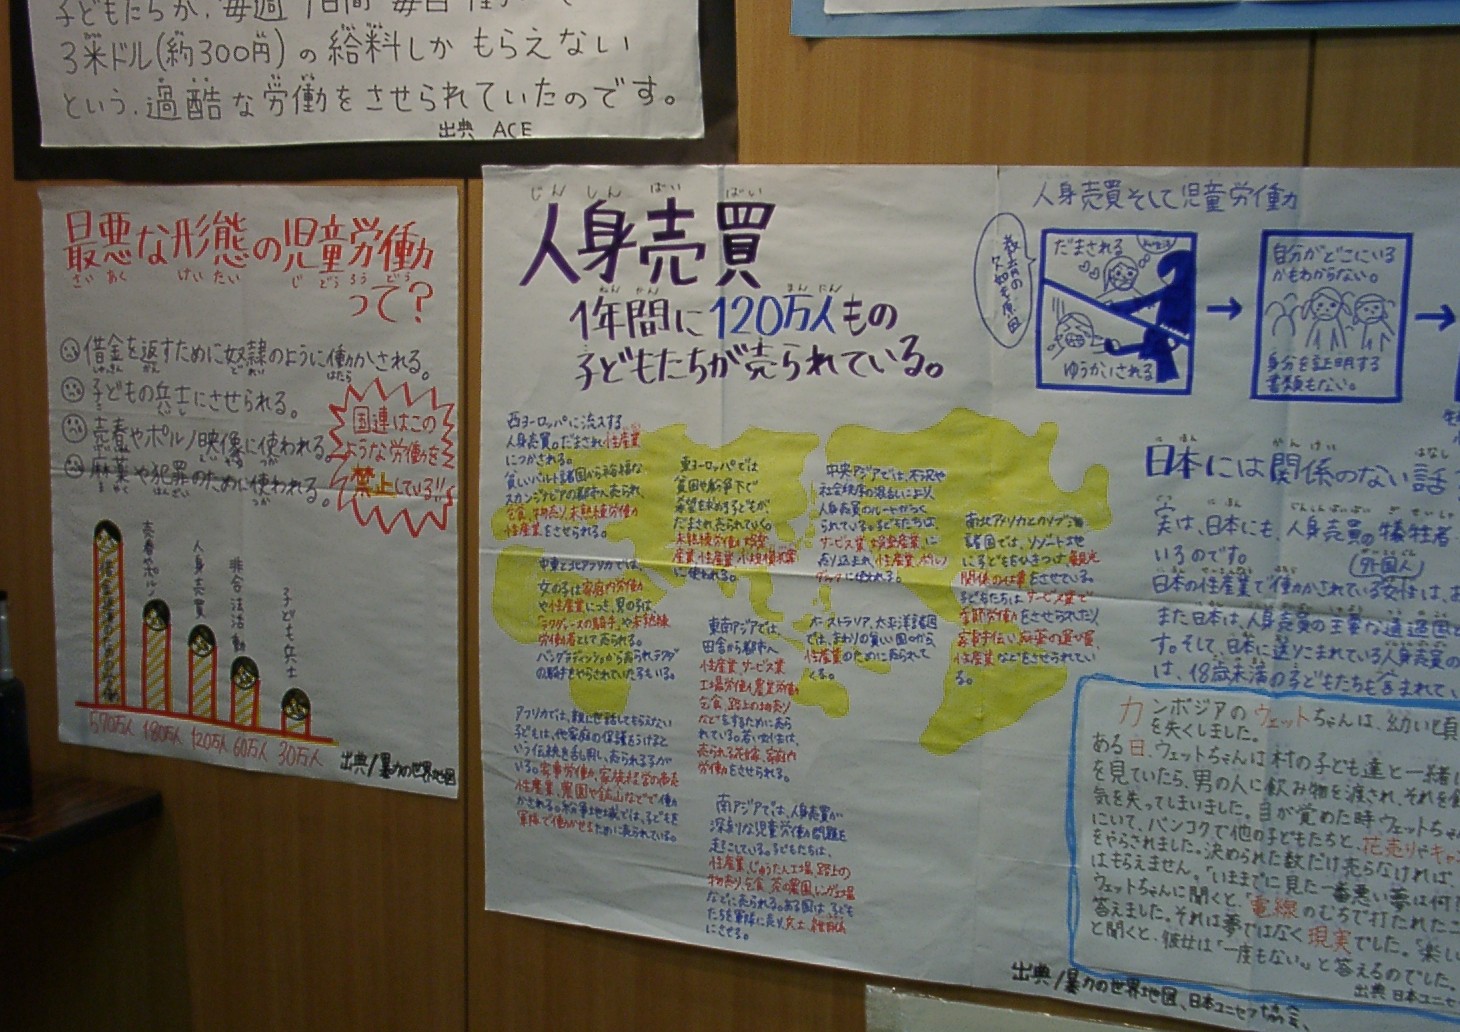 子どもたちが、毎週7日間毎日
3米ドル(約300円)の給料しかもらえない
という、過酷な労働をさせられていたのです。
出典 ACE
最悪な形態の児童労働
さいあく けいたい じどうろうどう
って?
借金を返すために奴隷のように働かされる。
子どもの兵士にさせられる。
売春やポルノ映像に使われる。
麻薬や犯罪のために使われる。
国連はこの
ような労働を
禁止している!!
売春やポルノ
人身売買
非合法活動
子ども兵士
570万人 180万人 120万人 60万人 30万人
出典/暴力の世界地図
じんしんばいばい
人身売買
ねんかん まんにん
1年間に120万人もの
子どもたちが売られている。
西ヨーロッパに流入する
人身売買。だまされ性産業
につかされる。
貧しいバルト諸国から裕福な
スカンジナビアの都市へ売られ、
乞食、物売り、未熟練労働や
性産業をさせられる。
東ヨーロッパでは
貧困や紛争下で
希望を求める子どもが、
だまされ売られていく。
未熟練労働や娯楽
産業、性産業、小規模犯罪
に使われる。
中央アジアでは、不況や
社会秩序の混乱により、
人身売買のルートがつく
られている。子どもたちは、
サービス業、娯楽産業に
売り込まれ、性産業、ポルノ
に使われる。
南北アメリカとカリブ海
諸国では、リゾート地
に子どもをひきつけ、観光
関係の仕事をさせている。
子どもたちは、サービス業で
季節労働をさせられたり、
家事手伝い、麻薬の運び屋、
性産業などをさせられてい
る。
中東と北アフリカでは、
女の子は家庭内労働
や性産業につき、男の子は
「ラクダレースの騎手」や未熟練
労働者として売られる。
バングラディッシュから売られラクダ
の騎手をやらされていた子もいる。
東南アジアでは、
田舎から都市へ
性産業、サービス業
工場労働、農業労働
乞食、路上の物売り
などをするために売ら
れている。若い女性は、
売られる花嫁、家庭内
労働をさせられる。
オーストラリア、太平洋諸国
では、まわりの貧しい国々から
性産業のために売られて
くる。
アフリカでは、親に世話してもらえない
子どもは、他家庭の保護をうけると
いう伝統を悪用し、売られる子が
いる。家事労働、家族経営の商売
性産業、農園や鉱山などで働
かされる。紛争地域では、子どもを
軍隊で働かせるために売られている。
南アジアでは、人身売買が
深刻な児童労働問題を
起こしている。子どもたちは、
性産業、じゅうたん工場、路上の
物売り、乞食、茶の農園、レンガ工場
などに売られる。ある国は、子ども
たちを軍隊に売り、兵士、雑用係
にさせる。
人身売買そして児童労働
教育の欠如も原因
だまされる
ゆうかいされる
自分がどこにいる
かもわからない。
身分を証明する
書類もない。
日本には関係のない話
実は、日本にも、人身売買の犠牲者
いるのです。
(外国人)
日本の性産業で働かされている女性は、
また日本は、人身売買の主要な通過国
す。そして、日本に送りこまれている人身売買の
は、18歳未満の子どもたちも含まれて
カンボジアのウェットちゃんは、幼い頃
を失くしました。
ある日、ウェットちゃんは村の子ども達と一緒に
を見ていたら、男の人に飲み物を渡され、それを飲
気を失ってしまいました。目が覚めた時ウェットちゃ
にいて、バンコクで他の子どもたちと、花売りやキャン
をやらされました。決められた数だけ売らなければ、
はもらえません。「いままでに見た一番悪い夢は何
ウェットちゃんに聞くと、「電線のむちで打たれたこ
答えました。それは夢ではなく現実でした。「楽し
と聞くと、彼女は「一度もない。」と答えるのでした。
出典 日本ユニセ
出典/暴力の世界地図、日本ユニセフ協会、